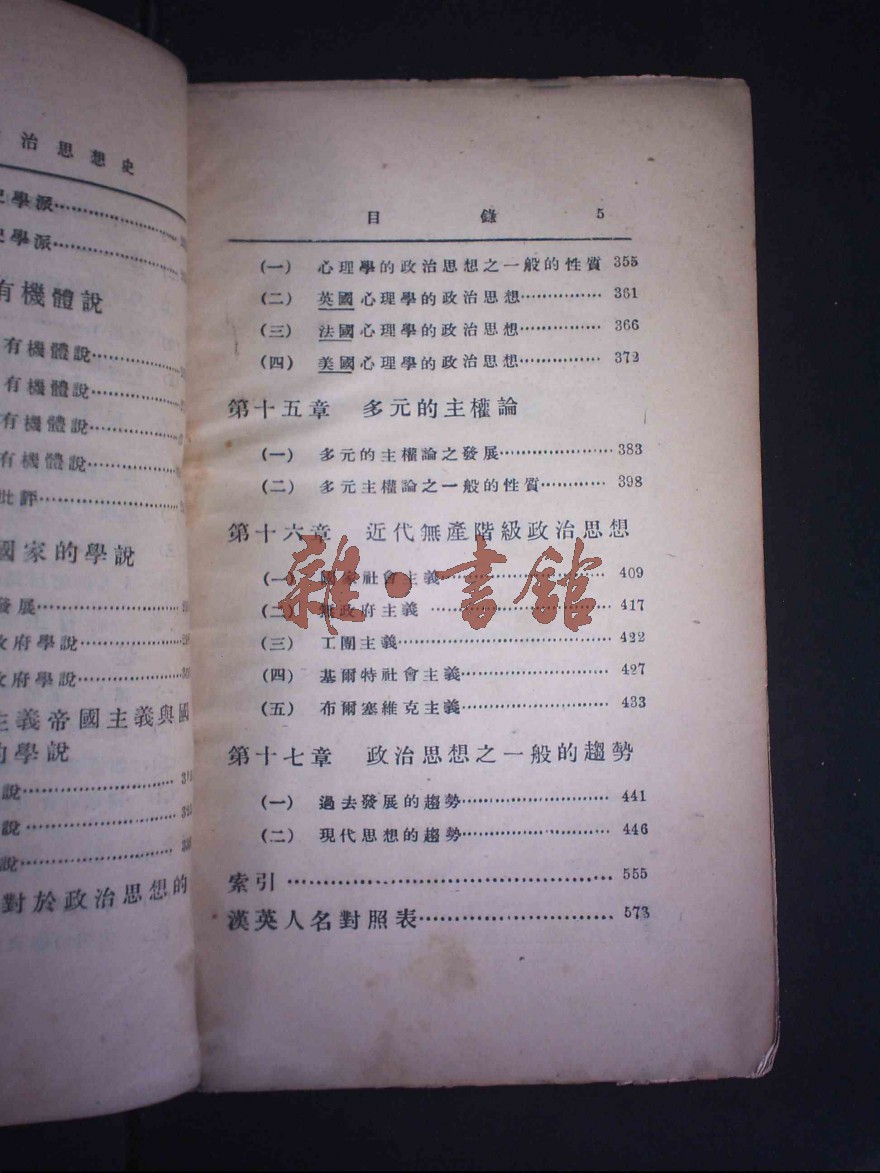 治思想史
史學派
史學派
有機體說
有機體說
有機體說
有機體說
有機體說
批評
國家的學說
發展
政府學說
政府學說
主義帝國主義與國
的學說
說
說
說
對於政治思想的
目錄 5
(一) 心理學的政治思想之一般的性質 355
(二) 英國心理學的政治思想 361
(三) 法國心理學的政治思想 366
(四) 美國心理學的政治思想 372
第十五章 多元的主權論
(一) 多元的主權論之發展 383
(二) 多元主權論之一般的性質 398
第十六章 近代無產階級政治思想
(一) 國家社會主義 409
(二) 無政府主義 417
(三) 工團主義 422
(四) 基爾特社會主義 427
(五) 布爾塞維克主義 433
第十七章 政治思想之一般的趨勢
(一) 過去發展的趨勢 441
(二) 現代思想的趨勢 446
索引 555
漢英人名對照表 573
雜·書館